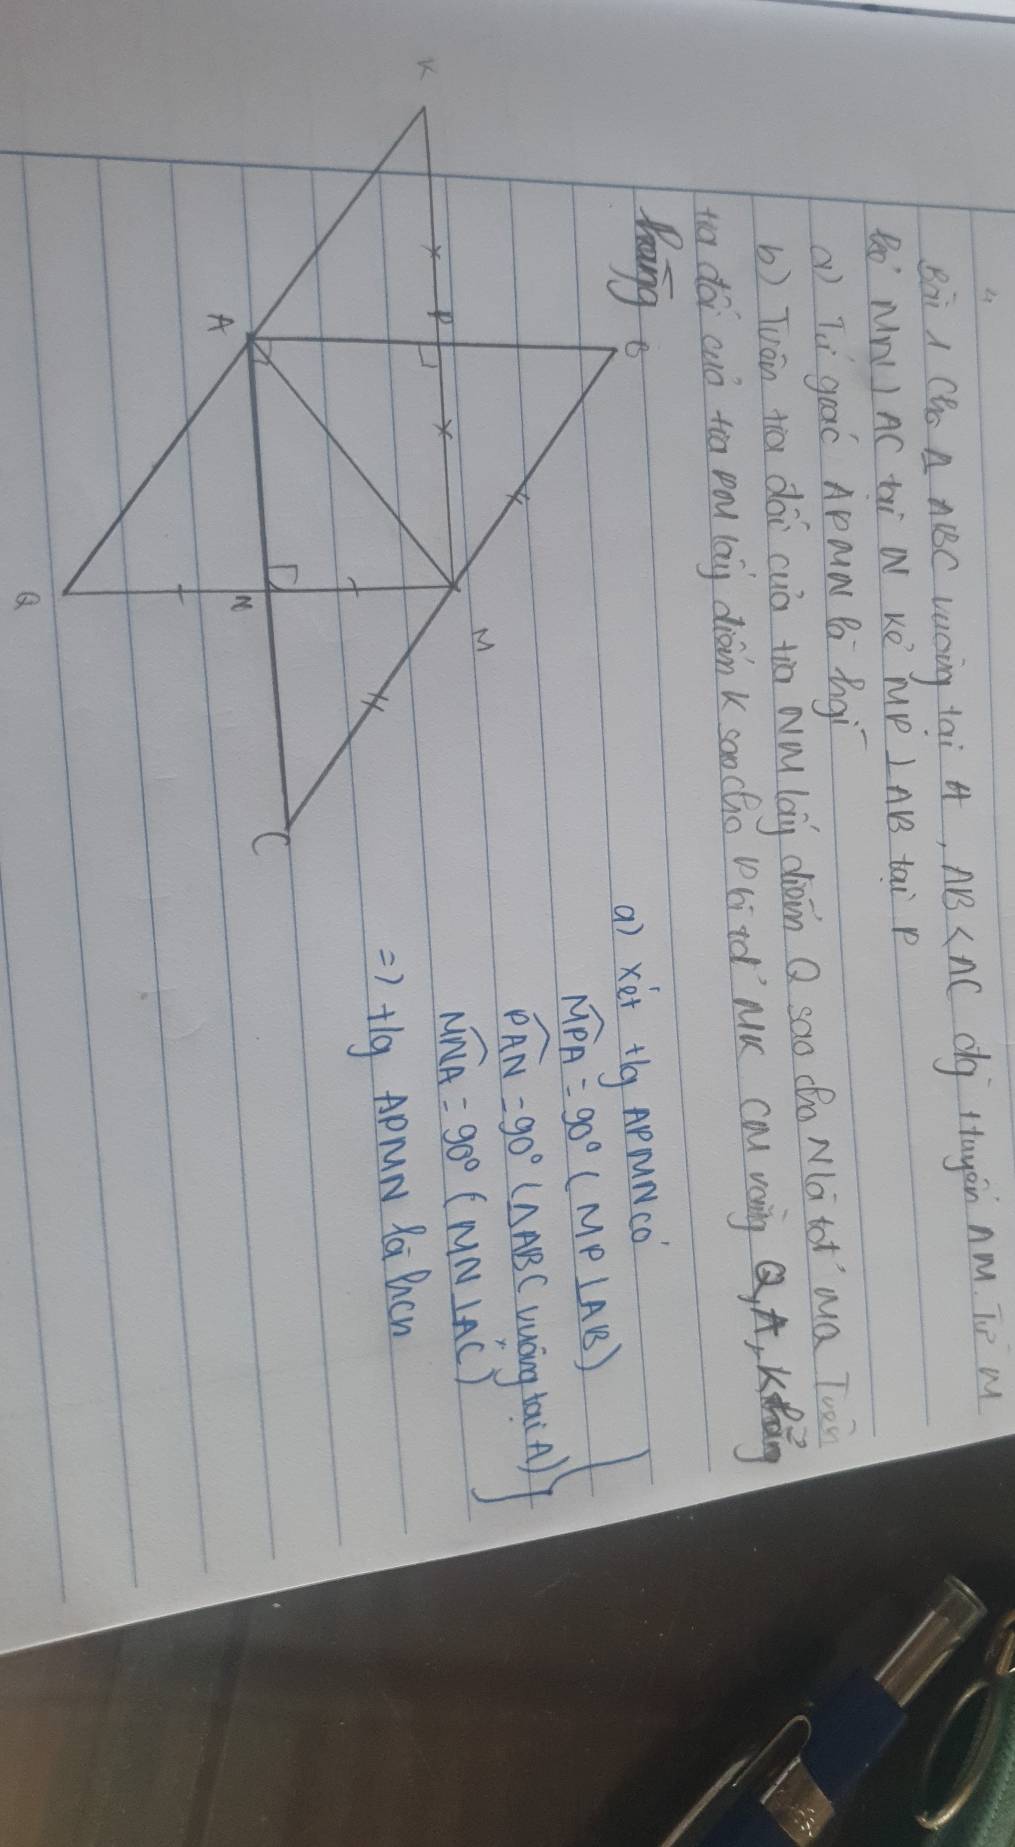 Bài 1 Cho Δ ABC vuông tại A, AB < AC đg tuyến AM. Từ M
kẻ MN ⊥ AC tại N kẻ MP ⊥ AB tại P
a) Tứ giác APMN là hgì
b) Trên tia đối của tia NM lấy điểm Q sao cho N là tđ MQ Trên
tia đối của tia PM lấy điểm K sao cho P là tđ MK CM rằng Q, A, K thẳng
hàng
K
P
B
A
M
Q
N
C
a) xét t/g APMN có
MPA = 90° (MP ⊥ AB)
PAN = 90° (ΔABC vuông tại A)
MNA = 90° (MN ⊥ AC)
=> t/g APMN là hcn